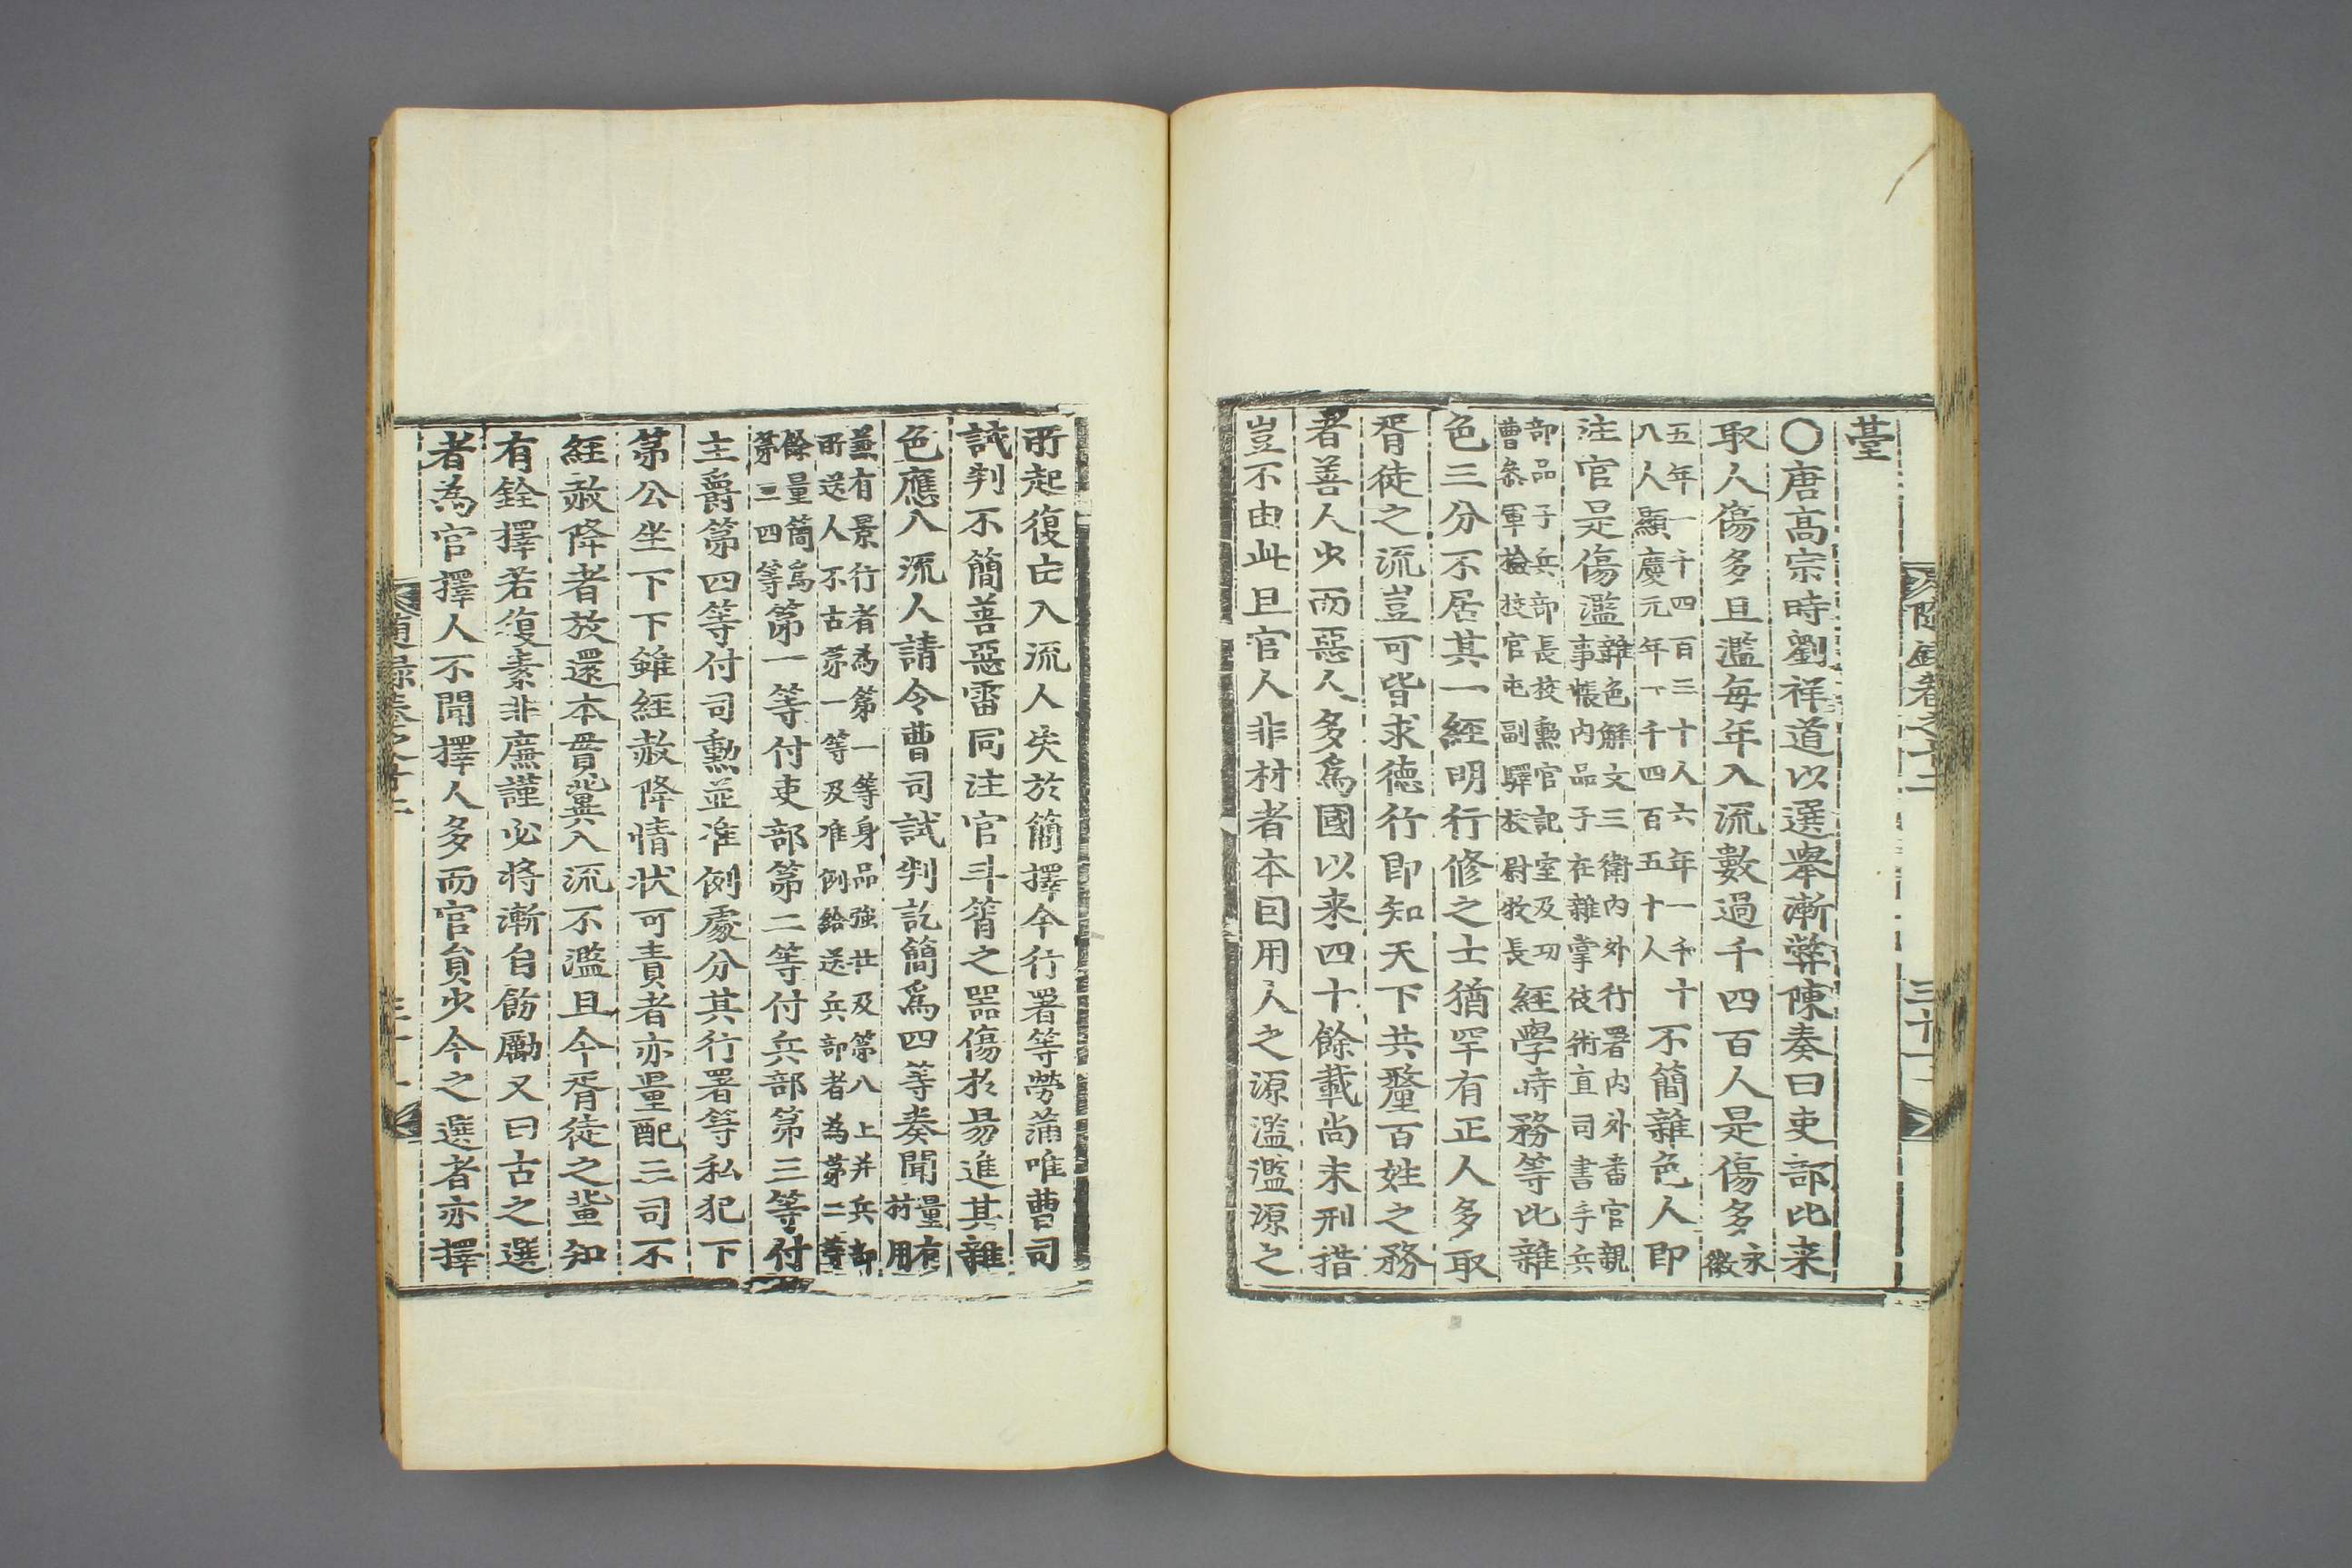 臺
〇唐高宗時劉祥道以選舉漸弊陳奏曰吏部比来
取人傷多且濫每年入流數過千四百人是傷多永徽
五年一千四百三十人六年一千十
八人顯慶元年一千四百五十人
不簡雜色人即
注官是傷濫
雜色解文三衛內外行署內外番官親
事帳內品子在雜掌伎術直司書手兵
部品子兵部長校勳官記室及功
曹叅軍檢校官屯副驛校尉牧長
經學時務等比雜
色三分不居其一經明行修之士猶罕有正人多取
胥徒之流豈可皆求德行即知天下共釐百姓之務
者善人少而惡人多爲國以来四十餘載尚未刑措
豈不由此且官人非材者本因用人之源濫濫源之
隨錄卷之十二
三十一
所起復由入流人失於簡擇今行署等勞滿唯曹司
試判不簡善惡雷同注官斗筲之器傷於易進其雜
色應入流人請令曹司試判訖簡爲四等奏聞
量有
材用
兼有景行者爲第一等身品強壯及第八上并兵部
所送人不古第一等及准例給送兵部者為第二等
餘量簡爲
第三四等
第一等付吏部第二等付兵部第三等付
主爵第四等付司勳並准例處分其行署等私犯下
第公坐下下雖經赦降情状可責者亦量配三司不
經赦降者放還本貫冀入流不濫且今胥徒之輩知
有銓擇若復素非廉謹必將漸自飭勵又曰古之選
者為官擇人不聞擇人多而官員少今之選者亦擇